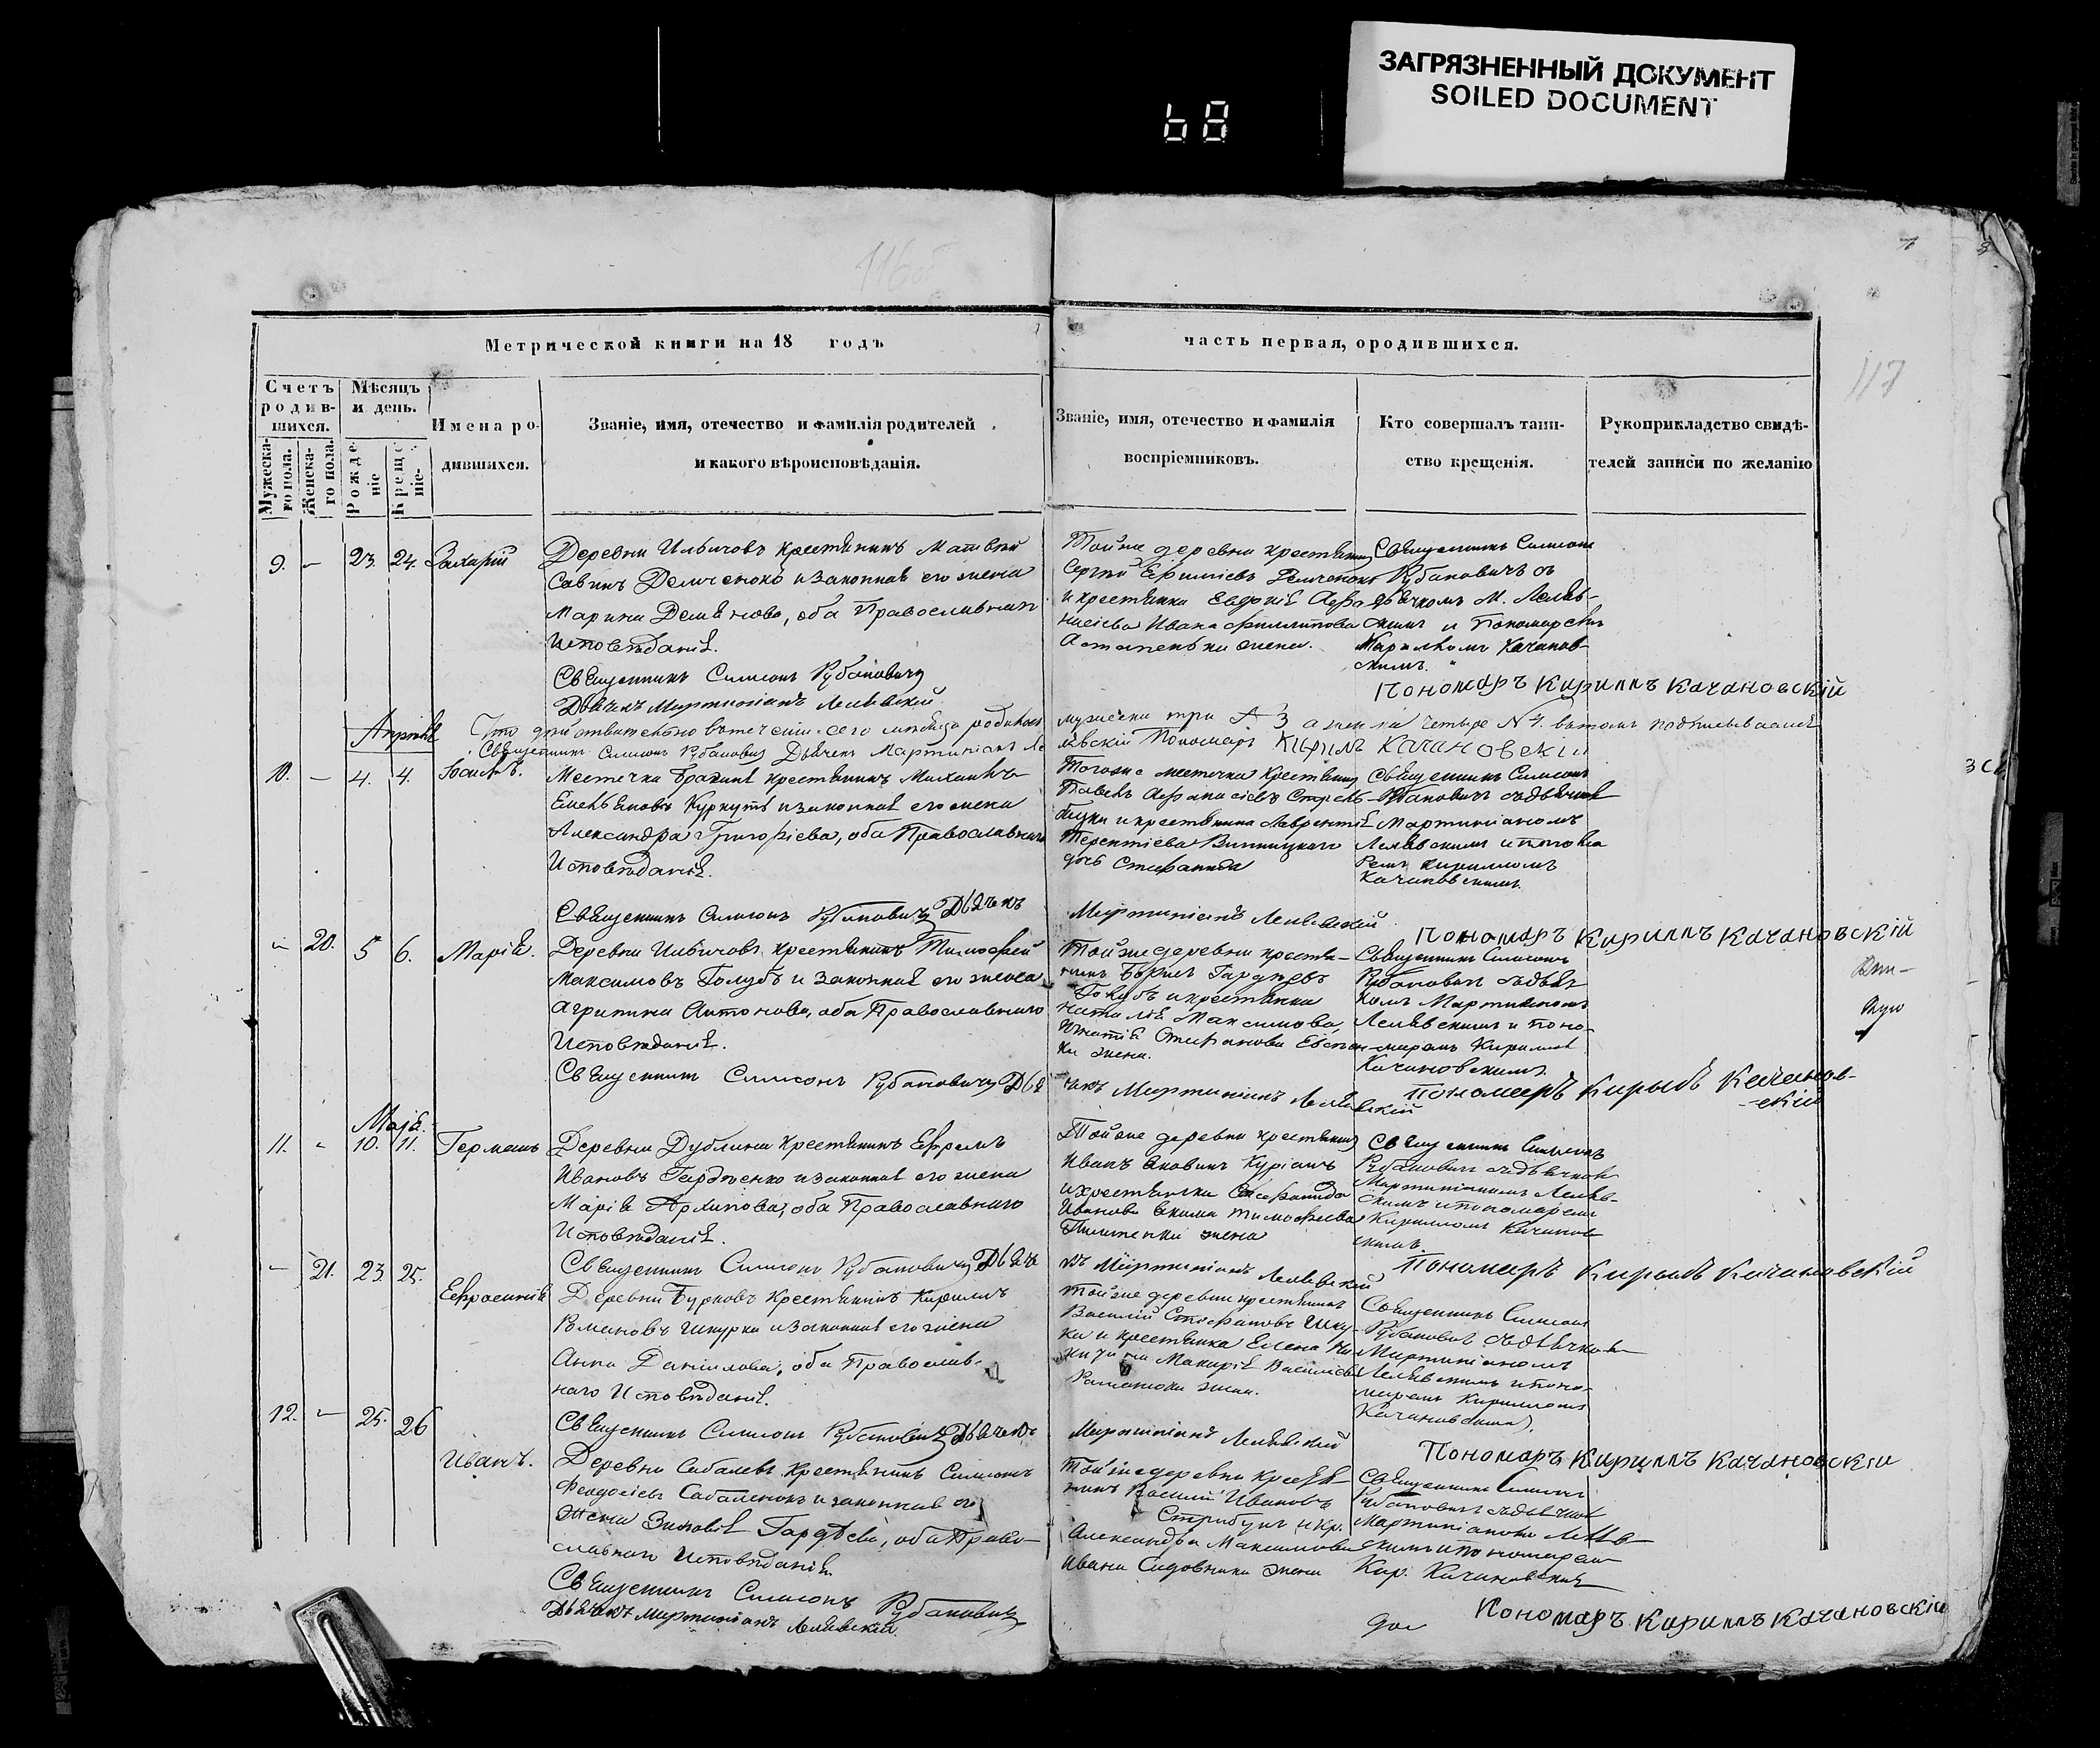 ЗАГРЯЗНЕННЫЙ ДОКУМЕНТ
SOILED DOCUMENT
68
116об
117
Метрической книги на 18 годъ
часть первая, ородившихся.
Счетъ родившихся.
Мужескаго пола.
Женскаго пола.
Мѣсяцъ и день.
Рожденіе
Крещеніе.
Имена родившихся.
Званіе, имя, отечество и фамилія родителей
и какого вѣроисповѣданія.
Званіе, имя, отечество и фамилія
воспріемниковъ.
Кто совершалъ таин-
ство крещенія.
Рукоприкладство свидѣ-
телей записи по желанію
9. – 23. 24. Захарій
Деревни Ильичовъ крестянинъ Матвей
Савинъ Демченоко изаконная его жена
Марина Демянова, оба Православнаго
Исповѣданія.
Священникъ Симеонъ Рубановичъ
Дьячекъ Мартиніанъ Лелявскій
Тойже деревни крестянинъ
Сергѣй Ефиміевъ Демченокъ
и крестянка Евдокія Афа
насіева Ивана Филлипова
Астапенки жена.
Священникъ Симеонъ
Рубановичъ съ
дьячкомъ М. Леляв-
скимъ и Пономаремъ
Кирилломъ Качанов-
скимъ.
Пономаръ Кириллъ Качановскій
Апрель
Что действительно втечении сего месяца родилось
мужеска три № 3 а женска четыре № 4. въ томъ подписываемся
Священникъ Симеонъ Рубановичъ Дьячекъ Мартиніанъ Ле
лявскій Пономаръ Кирилъ Качановскій
10. – 4. 4. Іосифъ.
Местечка Брагиня крестянинъ Михаилъ
Емельяновъ Куркуть изаконная его жена
Александра Григоріева, оба Православнаго
Исповѣданія.
Священникъ Симеонъ Рубановичъ Дьячекъ
Мартиніанъ Лелявскій
Тогоже местечка крестянинъ
Павелъ Афанасіевъ Стрель
Терентіева Винницкаго
дочь Стефанида
Священникъ Симеонъ
Рубановичъ съдьячкомъ
Мартиніаномъ
Лелявскимъ и понома
ремъ Кирилломъ
Качановскимъ.
Пономаръ Кириллъ Качановскій
– 20. 5 6. Марія.
Деревни Ильичовъ крестянинъ Тимофей
Максимовъ Голубъ и законная его жена
Агрипина Антонова, оба Православнаго
Исповѣданія.
Священникъ Симеонъ Рубановичъ Дья
чекъ Мартиніанъ Лелявскій
Тойже деревни крестя-
нинъ Борисъ Гардѣевъ
Голубъ и крестянка
Наталія Максимова,
Игнатія Стефанова Евсеен
ки жена.
Священникъ Симеонъ
Рубановичъ съдьяч
комъ Мартиніаномъ
Лелявскимъ и поно-
маремъ Кирилломъ
Качановскимъ.
Пономаръ Кирылъ Качанов-
-скій
Маія.
11. – 10. 11. Германъ
Деревни Дублина крестянинъ Ефремъ
Ивановъ Гардѣенко изаконная его жена
Марія Архипова, оба Православнаго
Исповѣданія.
Священникъ Симеонъ Рубановичъ Дьяче
къ Мартиніанъ Лелявскій
Тойже деревни крестянинъ
Иванъ Яковинъ Куріанъ
и крестянка Стефанида
Иванова Якима Тимофеева
Пилипенки жена
Священникъ Симеонъ
Рубановичъ съдьячкомъ
Мартиніаномъ Леляв-
скимъ и пономаремъ
Кирилломъ Качанов
скимъ
Пономаръ Кирылъ Качановскій
– 21. 23 25. Евфросинія
Деревни Бурковъ крестянинъ Кириллъ
Романовъ Шкурка изаконная его жена
Анна Даніилова, оба Православ-
наго Исповѣданія.
Священникъ Симеонъ Рубановичъ Дьячекъ
Мартиніанъ Лелявскій
Тойже деревни крестянинъ
Василій Стефановъ Шкур
ка и крестянка Елена Ни
китина Макарія Василіева
Романюки жена.
Священникъ Симеонъ
Рубановичъ съдьячкомъ
Мартиніаномъ
Лелявскимъ и поно-
маремъ Кирилломъ
Качановскимъ.
Пономаръ Кириллъ Качановскіи
12. – 25. 26 Иванъ.
Деревни Сабалевъ Крестянинъ Симеонъ
Феодосіевъ Сабаленокъ и законная его
жена Зиновія Гардѣева, оба Право-
славнаго Исповѣданія.
Священникъ Симеонъ Рубановичъ
Дьячекъ Мартиніанъ Лелявскій.
Тойже деревни крестя
нинъ Василій Ивановъ
Стрибукъ и кр.
Александра Максимова
Ивана Садовника жена
Священникъ Симеонъ
Рубановичъ съдьячкомъ
Мартиніаномъ Леляв-
скимъ и пономаремъ
Кир. Качановскимъ
Пономаръ Кирилъ Качановскій